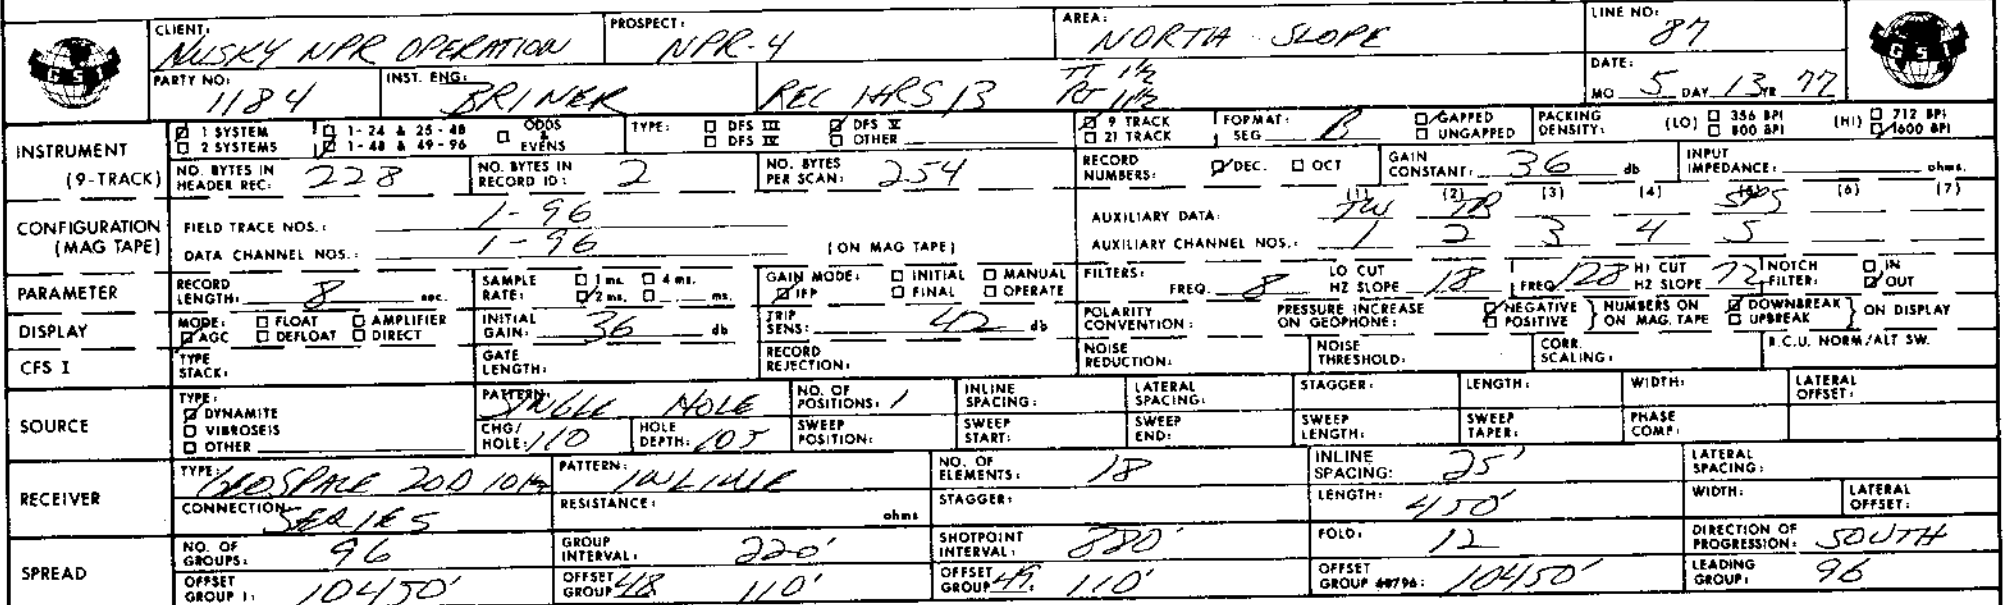 CLIENT: NUSKY NPR OPERATION PROSPECT: NPR-4 AREA: NORTH SLOPE LINE NO: 87
GSI GSI
PARTY NO: 1184 INST. ENG: BRINER REC HRS 13 TT 1½ RT 1½ DATE: MO 5 DAY 13 YR 77
INSTRUMENT (9-TRACK) 1 SYSTEM 1-24 & 25-48 ODDS & EVENS TYPE: DFS III DFS V 9 TRACK FORMAT: SEG B GAPPED PACKING DENSITY: (LO) 356 BPI (HI) 712 BPI
2 SYSTEMS 1-48 & 49-96 DFS IV OTHER 21 TRACK UNGAPPED 800 BPI 1600 BPI
NO. BYTES IN HEADER REC: 228 NO. BYTES IN RECORD ID: 2 NO. BYTES PER SCAN: 254 RECORD NUMBERS: DEC. OCT GAIN CONSTANT: 36 db INPUT IMPEDANCE: ohms.
CONFIGURATION (MAG TAPE) FIELD TRACE NOS.: 1-96 AUXILIARY DATA: (1) TW (2) TB (3) (4) (5) SPS (6) (7)
DATA CHANNEL NOS.: 1-96 (ON MAG TAPE) AUXILIARY CHANNEL NOS.: 1 2 3 4 5
PARAMETER RECORD LENGTH: 8 sec. SAMPLE RATE: 1 ms. 4 ms. 2 ms. ms. GAIN MODE: INITIAL MANUAL IFP FINAL OPERATE FILTERS: FREQ. 8 LO CUT HZ SLOPE 18 FREQ. 128 HI CUT HZ SLOPE 72 NOTCH FILTER: IN OUT
DISPLAY MODE: FLOAT AMPLIFIER AGC DEFLOAT DIRECT INITIAL GAIN: 36 db TRIP SENS: 42 db POLARITY CONVENTION: PRESSURE INCREASE ON GEOPHONE: NEGATIVE POSITIVE } NUMBERS ON ON MAG. TAPE DOWNBREAK UPBREAK } ON DISPLAY
CFS I TYPE STACK: GATE LENGTH: RECORD REJECTION: NOISE REDUCTION: NOISE THRESHOLD: CORR. SCALING: R.C.U. NORM/ALT SW.
SOURCE TYPE: DYNAMITE VIBROSEIS OTHER PATTERN: SINGLE HOLE NO. OF POSITIONS: 1 INLINE SPACING: LATERAL SPACING: STAGGER: LENGTH: WIDTH: LATERAL OFFSET:
CHG/HOLE: 110 HOLE DEPTH: 105 SWEEP POSITION: SWEEP START: SWEEP END: SWEEP LENGTH: SWEEP TAPER: PHASE COMP:
RECEIVER TYPE: GEOSPACE 20D 10Hz PATTERN: INLINE NO. OF ELEMENTS: 18 INLINE SPACING: 25' LATERAL SPACING:
CONNECTION: SERIES RESISTANCE: ohms STAGGER: LENGTH: 450' WIDTH: LATERAL OFFSET:
SPREAD NO. OF GROUPS: 96 GROUP INTERVAL: 220' SHOTPOINT INTERVAL: 880' FOLD: 12 DIRECTION OF PROGRESSION: SOUTH
OFFSET GROUP 1: 10450' OFFSET GROUP 48 110' OFFSET GROUP 49: 110' OFFSET GROUP 48/96: 10450' LEADING GROUP: 96